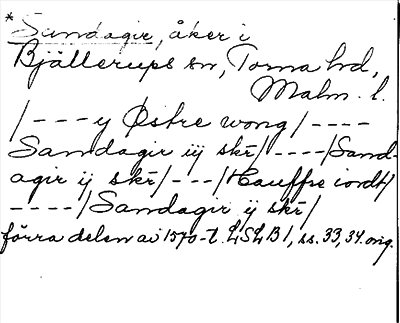 * Sandagir, åker i
Bjällerups sn, Torna hd,
Malm. l.
/---y Østre wong/----
Sandagir iij skr/----/Sand-
agir ij skr/---/Hauffre iordt/
----/Sandagir ij skr/
förra delen av 1570-t. LSLB 1, ss. 33, 34. orig.